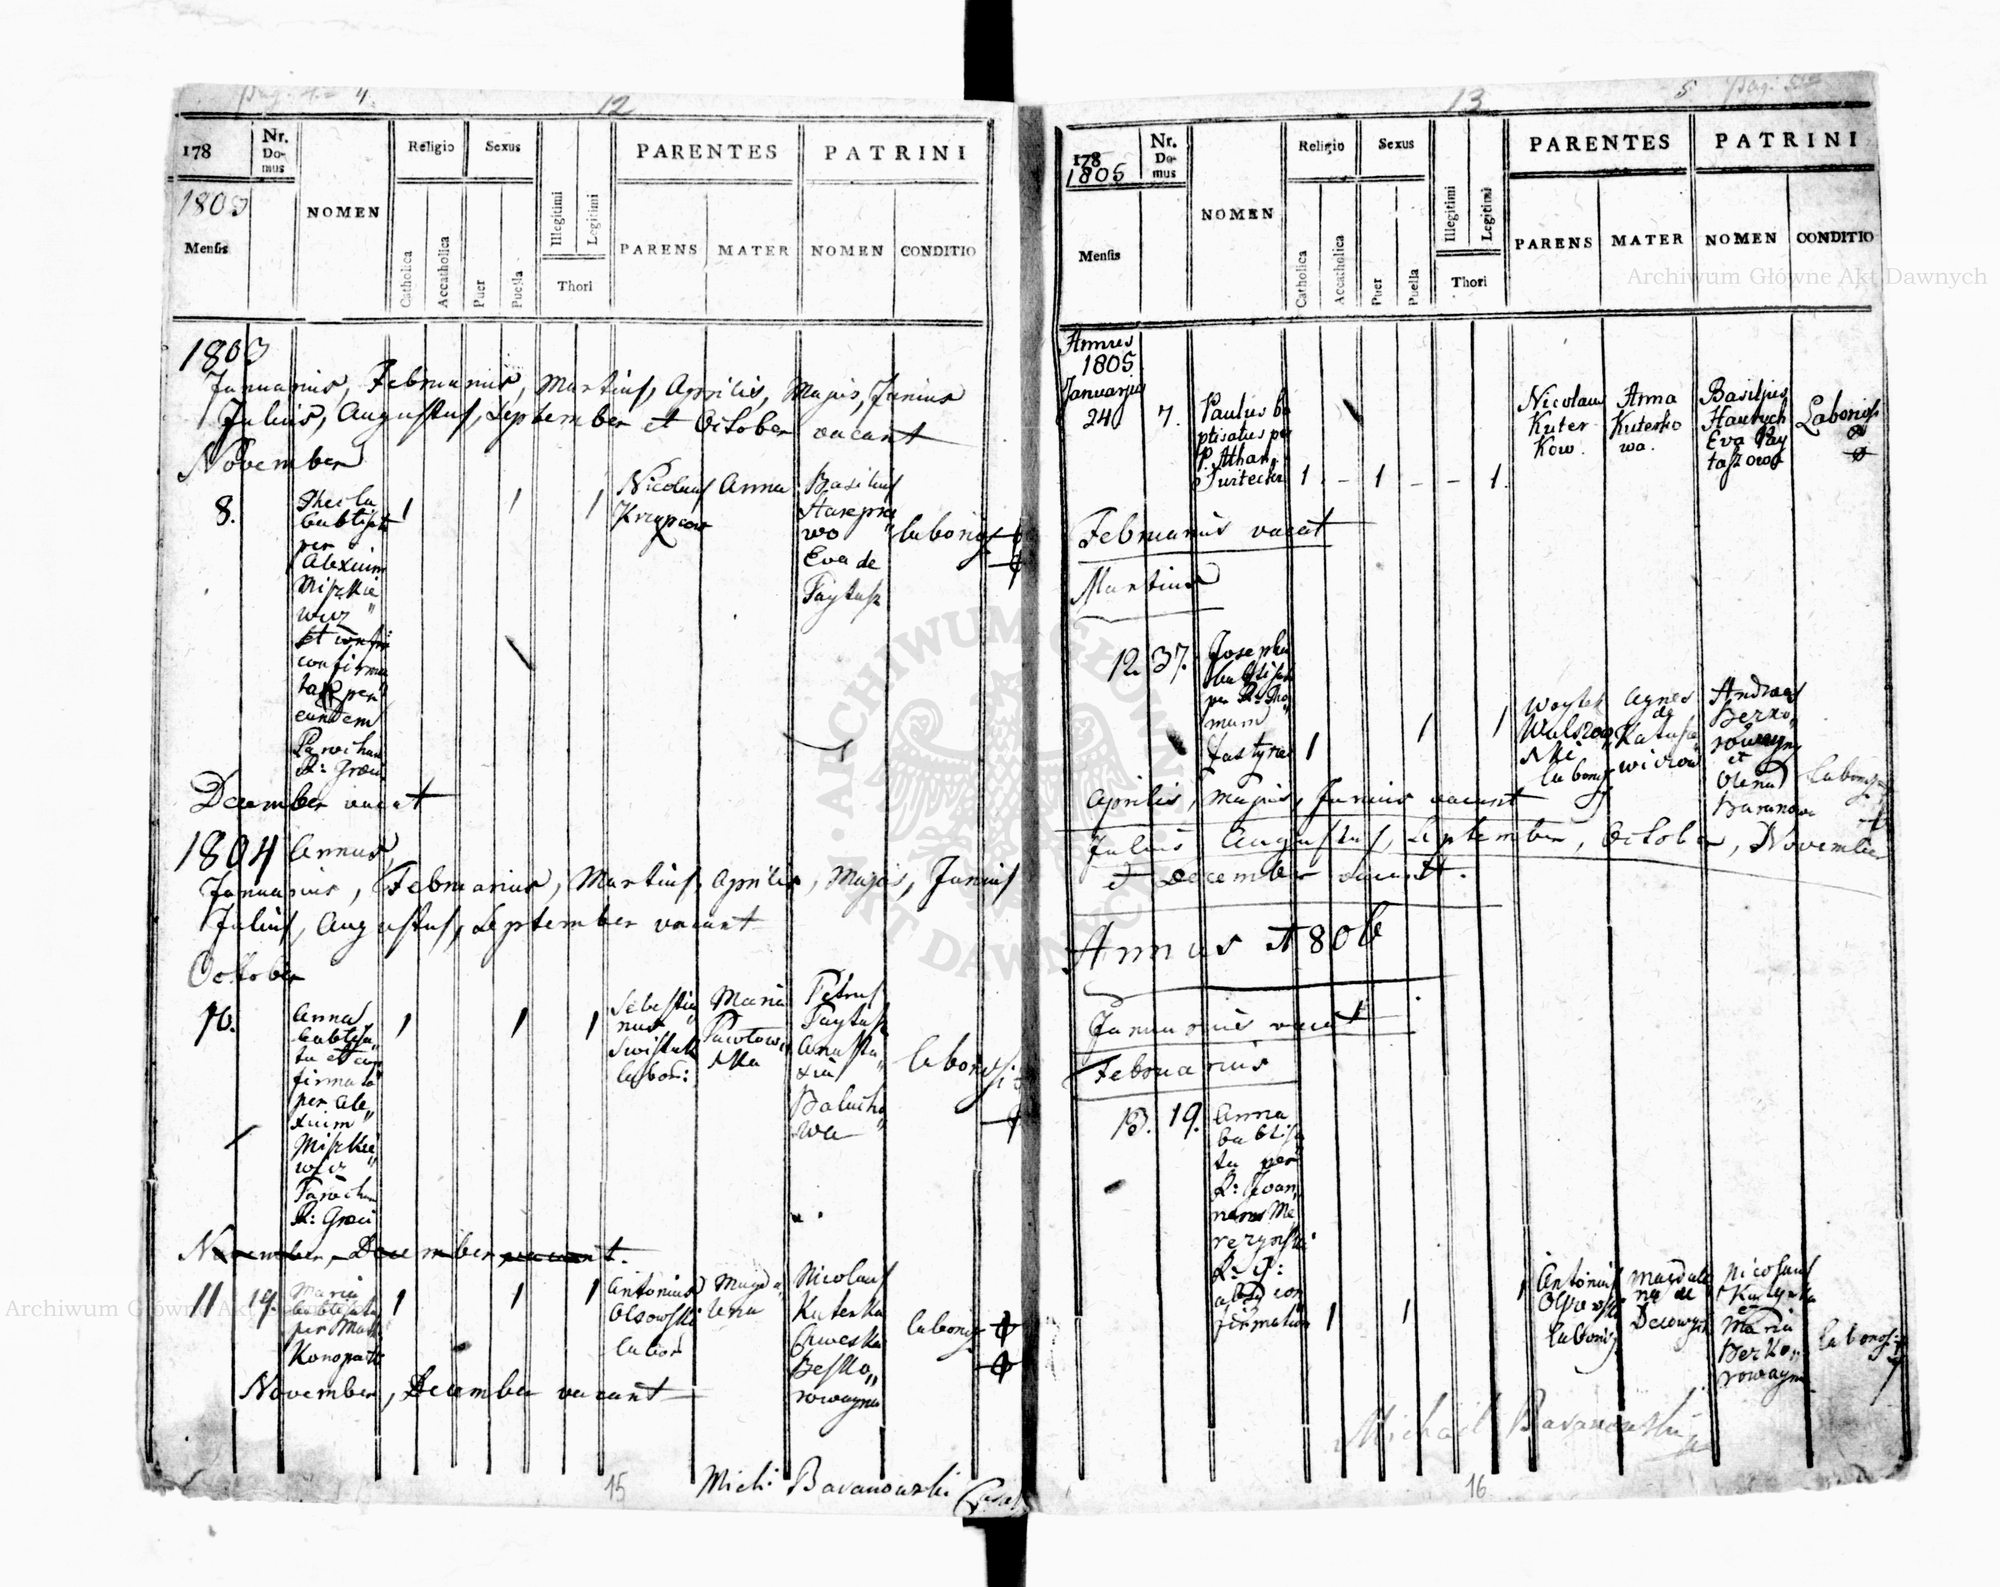 12
178
Nr. Do- mus
NOMEN
Religio
Sexus
PARENTES
PATRINI
1803
Mensis
Catholica
Accatholica
Puer
Puella
Illegitimi
Legitimi
Thori
PARENS
MATER
NOMEN
CONDITIO
1803
Januarius, Februarius, Martius, Aprilis, Majus, Junius
Julius, Augustus, September et October vacant
November
8.
Thecla
per
Alexium
Miszkie
wicz
1
1
1
Nicolaus
Anna
Basilius
Eva de
Taytasz
laborios
confirma
per
eundem
Parochum
R: Graeci
December vacat
1804 Annus
Januarius, Februarius, Martius, Aprilis, Majus, Junius
Julius, Augustus, September vacant
October
10.
Anna
baptisa
ta et con
firmata
per Ale
xium
Miszkie
wicz
Paroch
R: Graeci
1
1
1
Sebestia
nus
Swistak
labor:
Maria
Pawlows
ska
Petrus
Taytasz
Anasta
xia
labori
November, December vacant.
11
19.
Maria
baptisata
per
1
1
1
Antonius
Olsowski
labor
Magda
lena
Nicolaus
Kuterka
Besko
rowayna
laborios
November, December vacant
15
Mich: Baranowski
13
178
1805
Nr. Do- mus
NOMEN
Religio
Sexus
PARENTES
PATRINI
Mensis
Catholica
Accatholica
Puer
Puella
Illegitimi
Legitimi
Thori
PARENS
MATER
NOMEN
CONDITIO
Annus
1805
Januarius
24
7.
Paulus ba
ptisatus per
P. Athan
1
-
1
-
-
1
Nicolaus
Kuter
kow.
Anna
Kuterko
wa.
Basilius
Hawrych
Eva Pay
taszowa
Laborios
Februarius vacat
Martius
12
37.
Josepha
baptisata
per R: Tho
mam
1
1
1
Woytek
labori
Agnes
de
Andreas
Berko
rowayny
et
Olena
Baranowa
laborios
Aprilis, Majus, Junius vacant
Julius Augustus, September, October, November
et December vacant.
Annus 1806
Januarius vacat
Februarius
13.
19.
Anna
baptisa
ta per
R: Joan
nem Me
rezynski
R: G:
con
firmata
1
1
1
Antonius
Olsowski
laborios
Magdale
na de
Nicolaus
et
Maria
Berko
rowayna
laborios
Michael Baranowski
16
ARCHIWUM GŁÓWNE AKT DAWNYCH
Archiwum Główne Akt Dawnych
Archiwum Główne Akt